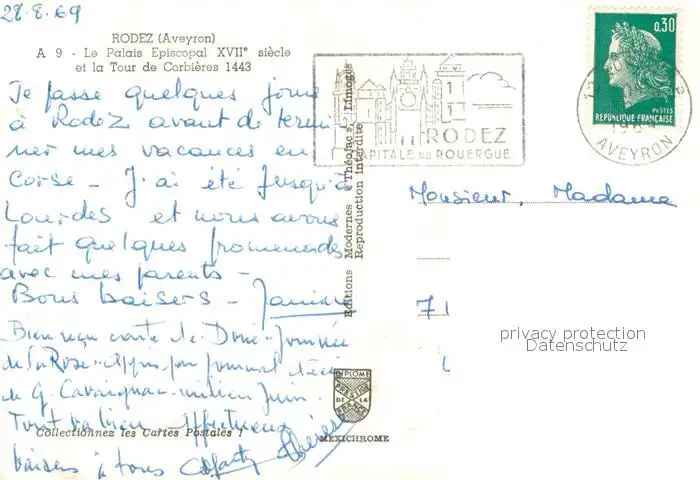 28.8.69
RODEZ (Aveyron)
A 9 - Le Palais Episcopal XVIIᵉ siècle
et la Tour de Corbières 1443
Je passe quelques jours
à Rodez avant de termi-
ner mes vacances en
Corse - J'ai été jusqu'à
Lourdes et nous avons
fait quelques promenades
avec mes parents -
Bons baisers -
Bien reçu carte de
de la Rose
de G. Cavaignac - milieu Juin.
Tout va bien affectueux
baisers à tous Thérèse
Collectionnez les Cartes Postales !
Editions Modernes « Théojac », Limoges
Reproduction Interdite
DIPLOME
PRESTIGE
DE LA
FRANCE
MEXICHROME
RODEZ
CAPITALE DU ROUERGUE
0,30
POSTES
REPUBLIQUE FRANÇAISE
12
RP
AVEYRON
Monsieur, Madame
71
privacy protection
Datenschutz